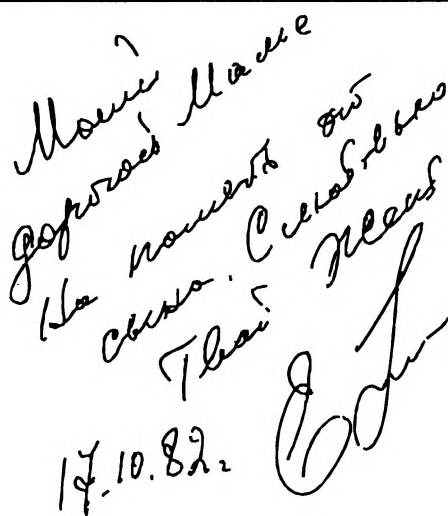 Моей
дорогой Маме
На память от
сына. С любовью
Твой Женя
17.10.82г